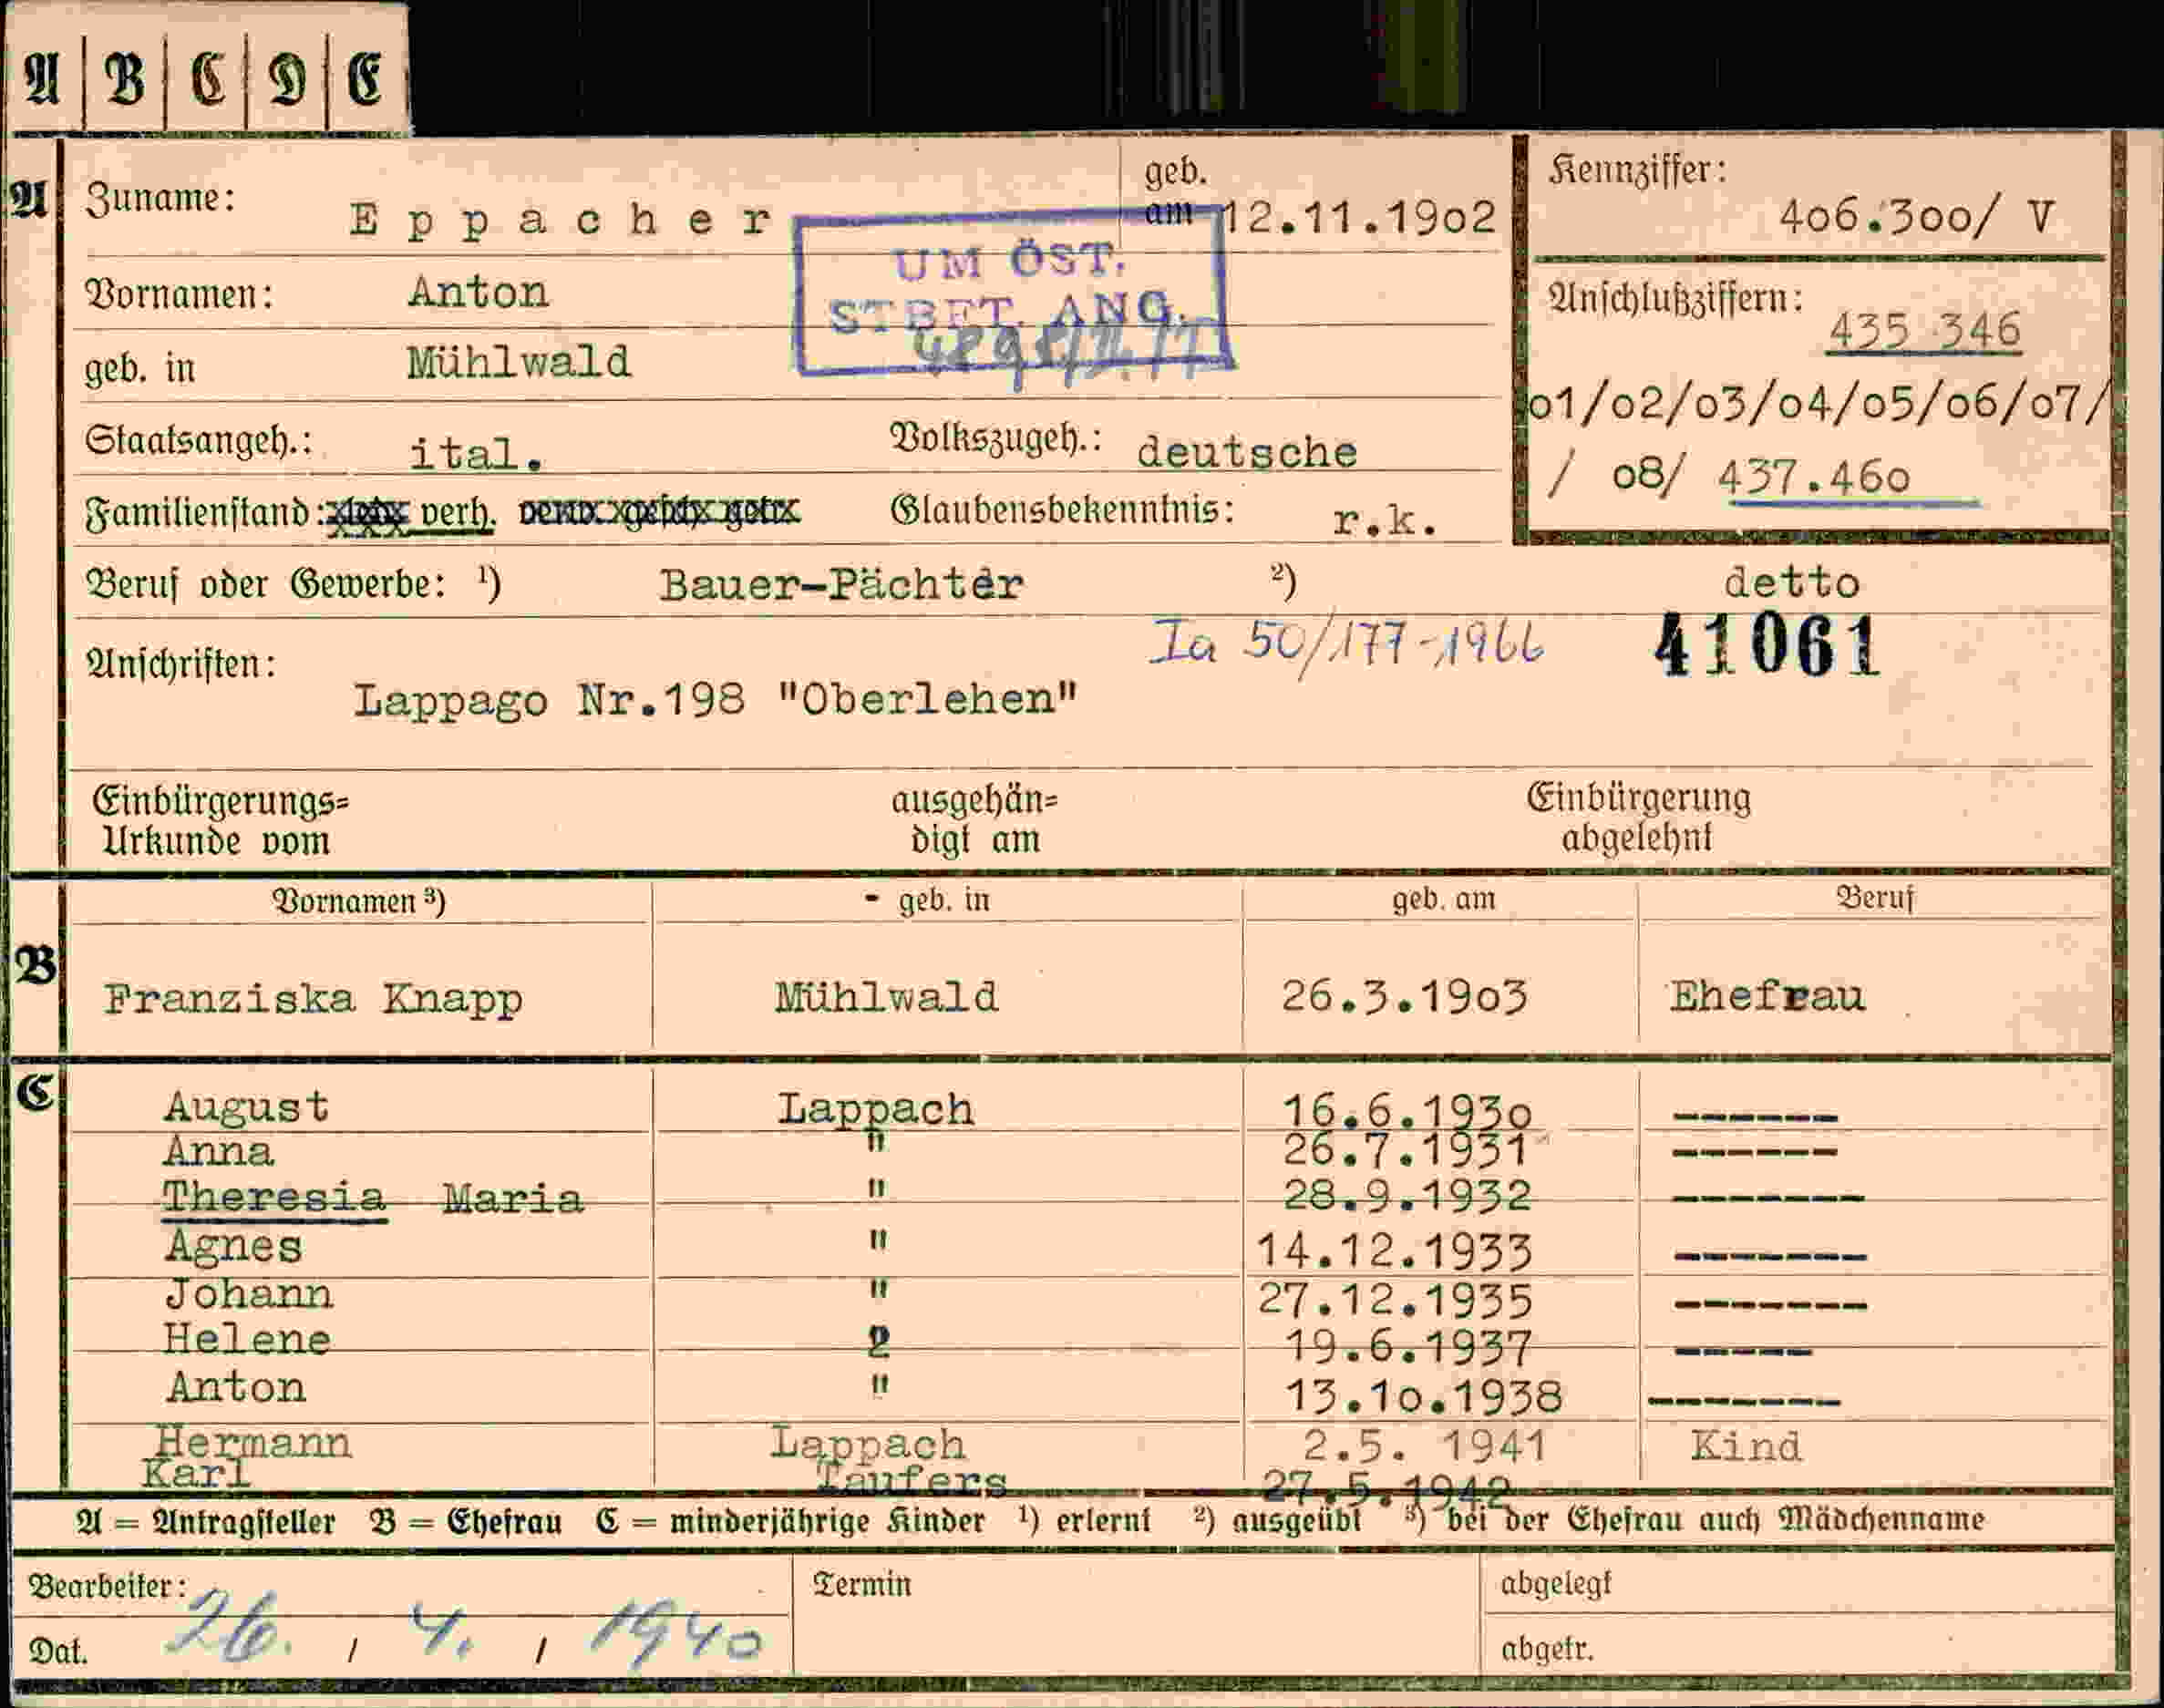 A B C D E
A Zuname: Eppacher geb. am 12.11.1902 Kennziffer: 406.300/ V
UM ÖST. STBFT. ANG.
Vornamen: Anton
Anschlußziffern: 435 346
geb. in Mühlwald
01/02/03/04/05/06/07/
Staatsangeh.: ital. Volkszugeh.: deutsche
/ 08/ 437.460
Familienstand: verh. Glaubensbekenntnis: r.k.
Beruf oder Gewerbe: ¹) Bauer-Pächter ²) detto
Ia 50/177-1966 41061
Anschriften:
Lappago Nr.198 "Oberlehen"
Einbürgerungs= ausgehän= Einbürgerung
Urkunde vom digt am abgelehnt
Vornamen ³) - geb. in geb. am Beruf
B Franziska Knapp Mühlwald 26.3.1903 Ehefrau
C August Lappach 16.6.1930 ------
Anna " 26.7.1931 ------
Theresia Maria " 28.9.1932 -------
Agnes " 14.12.1933 -------
Johann " 27.12.1935 -------
Helene 2 19.6.1937 -----
Anton " 13.10.1938 -------
Hermann Lappach 2.5. 1941 Kind
Karl Taufers 27.5.1942
A = Antragsteller B = Ehefrau C = minderjährige Kinder ¹) erlernt ²) ausgeübt ³) bei der Ehefrau auch Mädchenname
Bearbeiter: Termin abgelegt
Dat. 26. / 4. / 1940 abgetr.